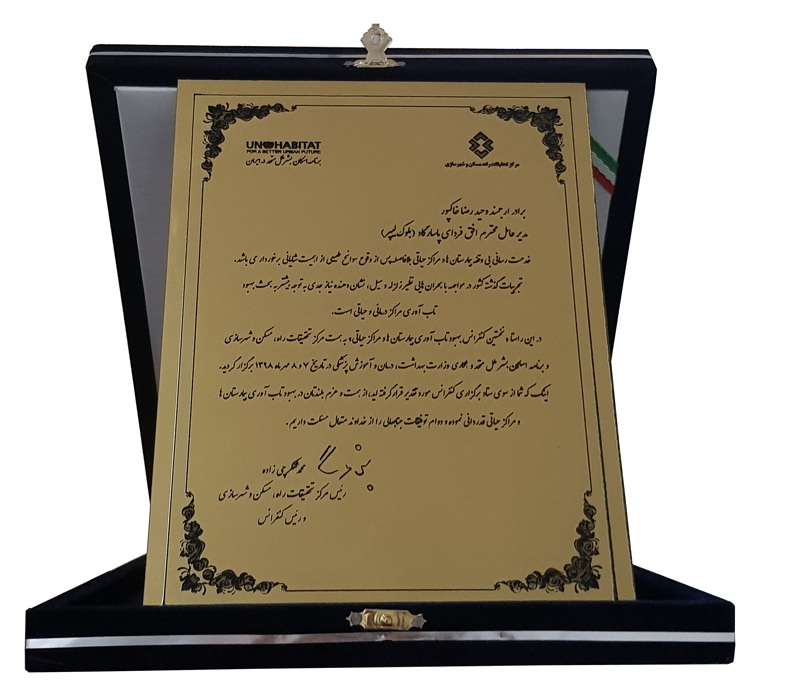 UN HABITAT
FOR A BETTER URBAN FUTURE
برنامه اسکان بشر ملل متحد در ایران
مرکز تحقیقات راه، مسکن و شهرسازی
برادر ارجمند وحید رضا خاکپور
مدیر عامل محترم افق فردای پاسارگاد (بلوک لیپر)
خدمت رسانی بی وقفه بیمارستان ها و مراکز حیاتی بلافاصله پس از وقوع سوانح طبیعی از اهمیت شایانی برخورداری باشد.
تجربیات گذشته کشور در مواجهه با بحران هایی نظیر زلزله و سیل، نشان دهنده نیاز جدی به توجه بیشتر به بحث بهبود
تاب آوری مراکز درمانی و حیاتی است.
در این راستا نخستین کنفرانس بهبود تاب آوری بیمارستان ها و مراکز حیاتی، به همت مرکز تحقیقات راه، مسکن و شهرسازی
و برنامه اسکان بشر ملل متحد و همکاری وزارت بهداشت، درمان و آموزش پزشکی در تاریخ ۷ و ۸ مهرماه ۱۳۹۸ برگزار گردید.
اینک که شما از سوی ستاد برگزاری کنفرانس مورد تقدیر قرار گرفته اید، از همت و عزم بلندتان در بهبود تاب آوری بیمارستان ها
و مراکز حیاتی قدردانی نموده و دوام توفیقات جنابعالی را از خداوند متعال مسئلت داریم.
محمد شکرچی زاده
رئیس مرکز تحقیقات راه، مسکن و شهرسازی
و رئیس کنفرانس